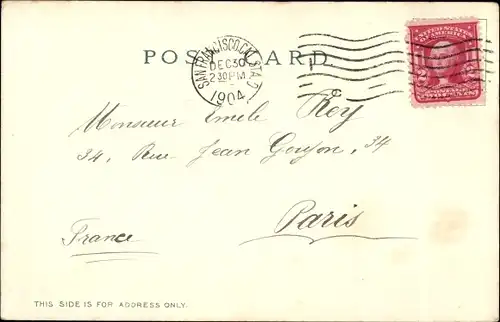 POST CARD
SAN FRANCISCO, CAL. STA. D
DEC 30
2 30 PM
1904
UNITED STATES
OF AMERICA
2 2
TWO CENTS
Monsieur Emile Roy
34, Rue Jean Goujon, 34
Paris
France
THIS SIDE IS FOR ADDRESS ONLY.